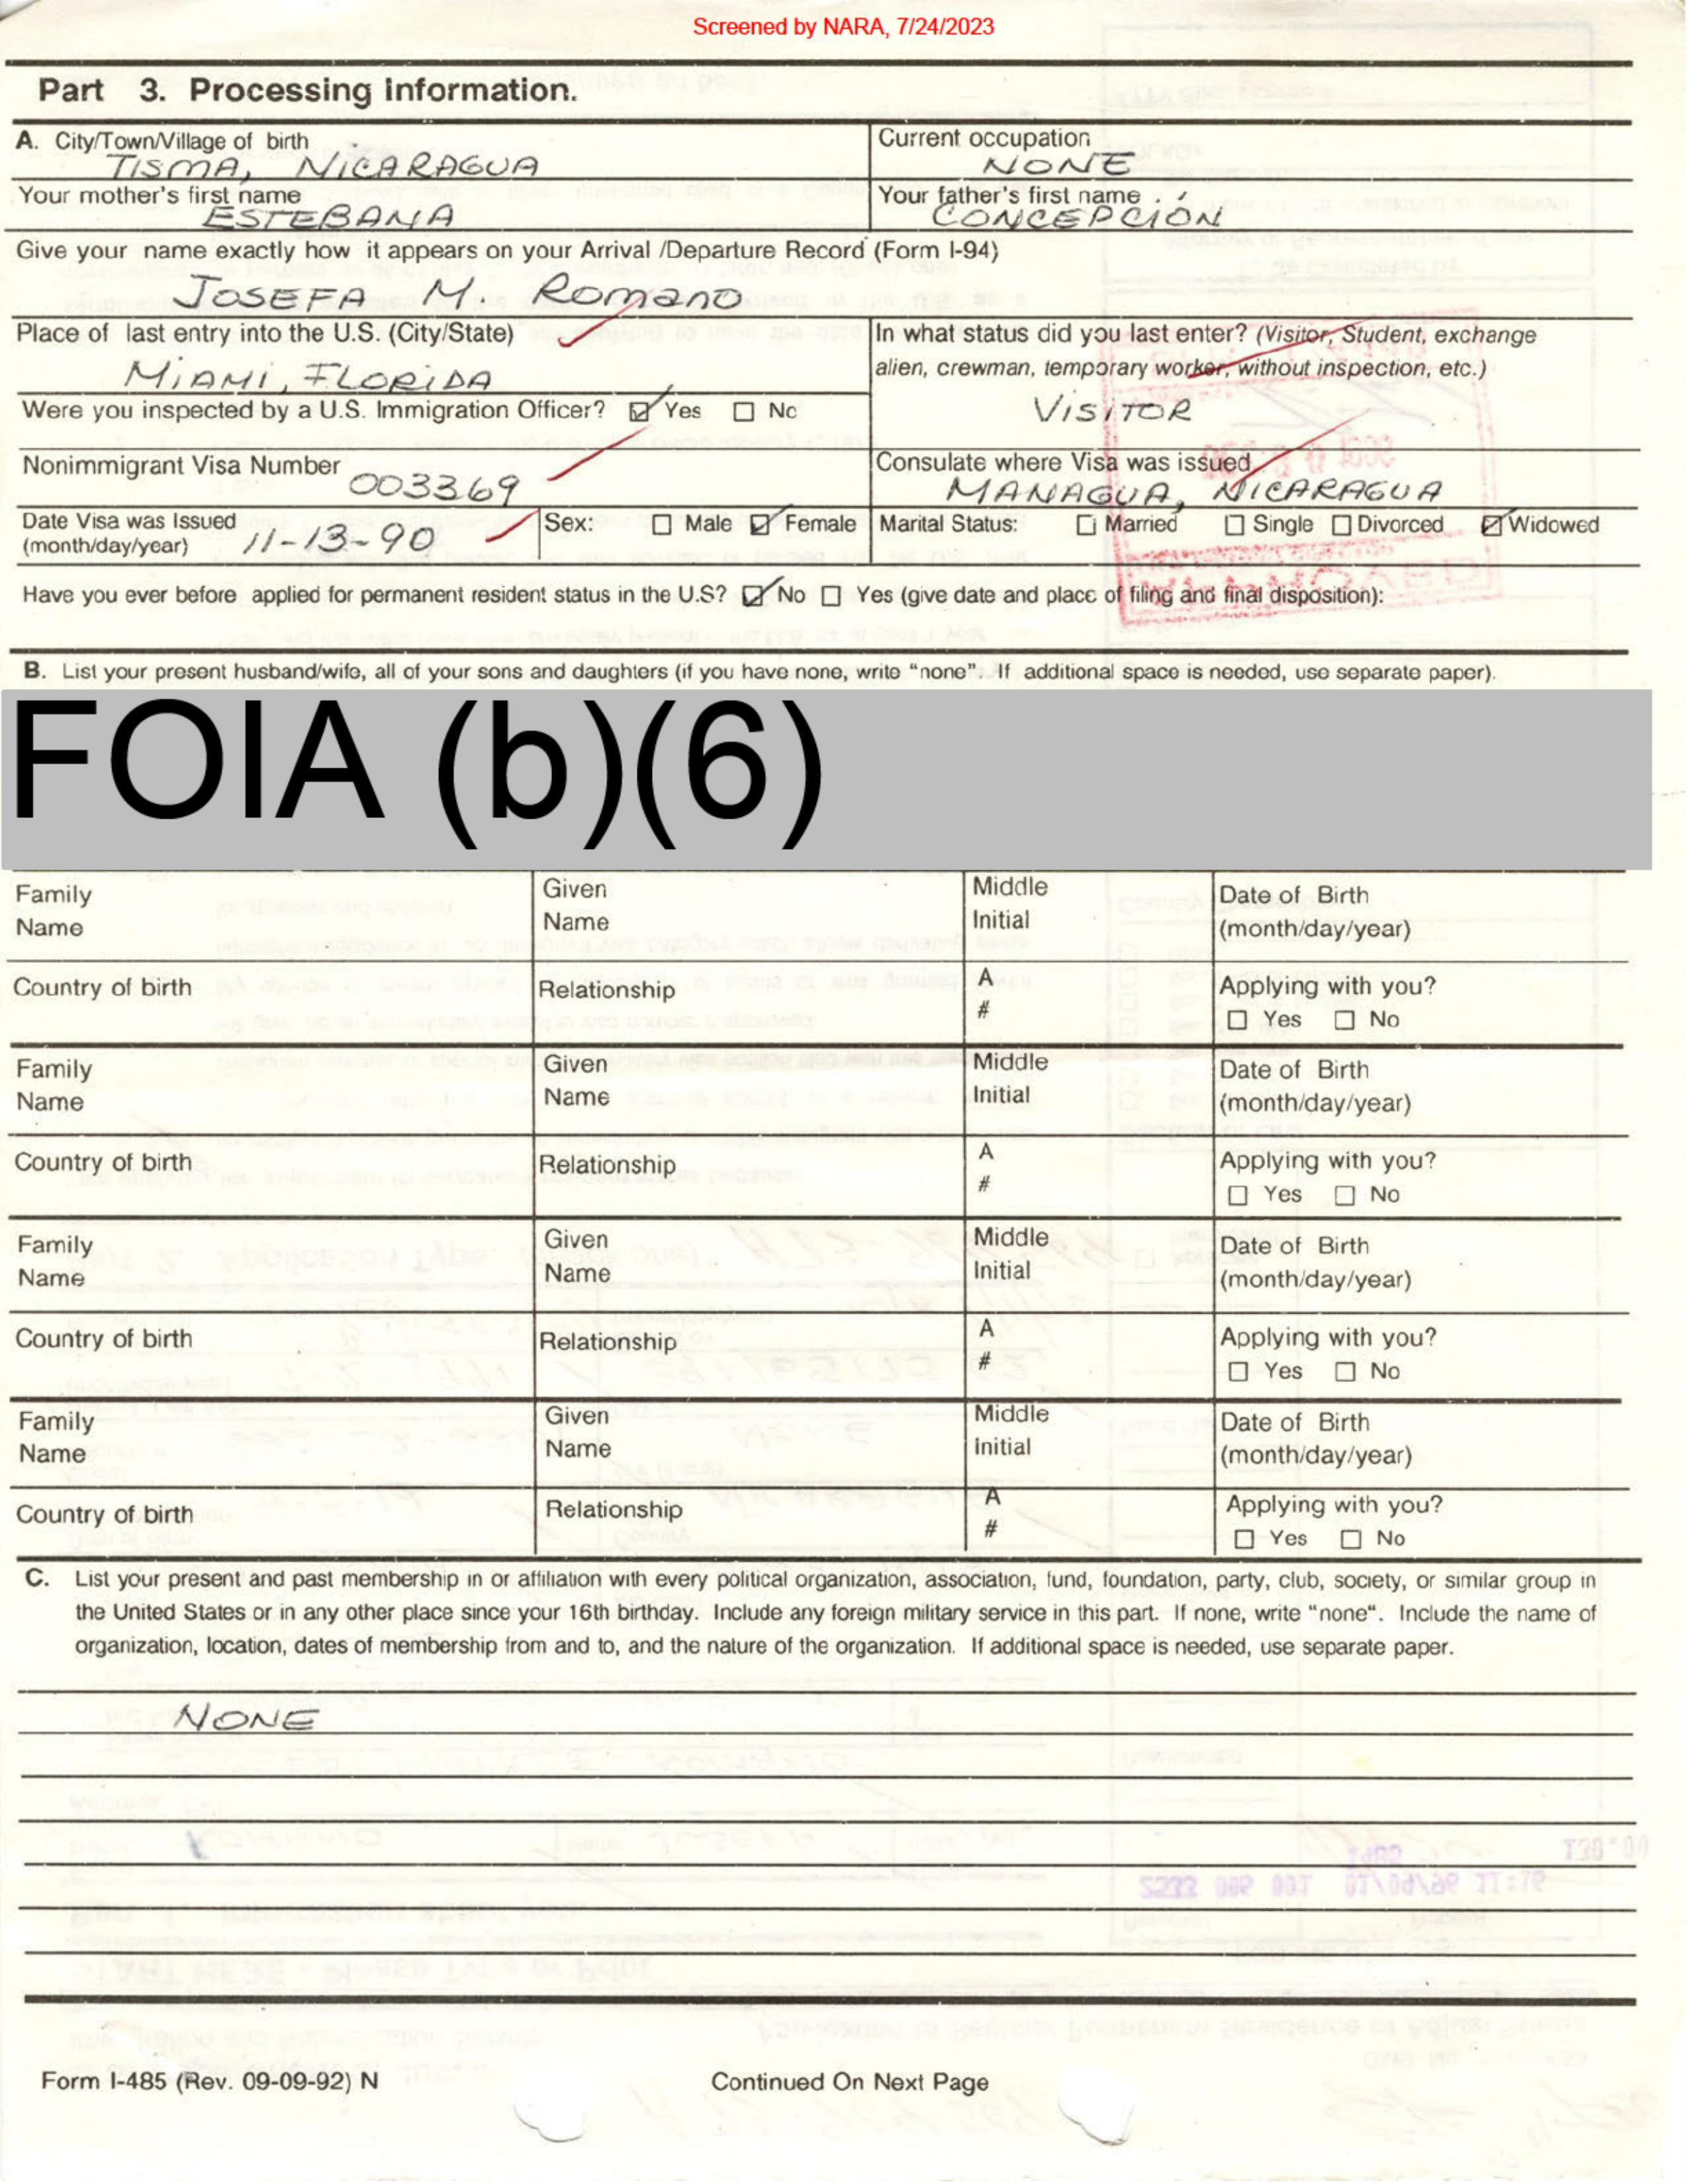 Screened by NARA, 7/24/2023
Part 3. Processing Information.
A. City/Town/Village of birth
TISMA, NICARAGUA
Current occupation
NONE
Your mother's first name
ESTEBANA
Your father's first name
CONCEPCIÓN
Give your name exactly how it appears on your Arrival /Departure Record (Form I-94)
JOSEFA M. Romano
Place of last entry into the U.S. (City/State)
MIAMI, FLORIDA
In what status did you last enter? (Visitor, Student, exchange
alien, crewman, temporary worker, without inspection, etc.)
VISITOR
Were you inspected by a U.S. Immigration Officer? ☑ Yes ☐ No
Nonimmigrant Visa Number
003369
Consulate where Visa was issued
MANAGUA, NICARAGUA
Date Visa was Issued
(month/day/year) 11-13-90
Sex: ☐ Male ☑ Female
Marital Status: ☐ Married ☐ Single ☐ Divorced ☑ Widowed
Have you ever before applied for permanent resident status in the U.S? ☑ No ☐ Yes (give date and place of filing and final disposition):
B. List your present husband/wife, all of your sons and daughters (if you have none, write "none". If additional space is needed, use separate paper).
FOIA (b)(6)
Family
Name
Given
Name
Middle
Initial
Date of Birth
(month/day/year)
Country of birth
Relationship
A
#
Applying with you?
☐ Yes ☐ No
Family
Name
Given
Name
Middle
Initial
Date of Birth
(month/day/year)
Country of birth
Relationship
A
#
Applying with you?
☐ Yes ☐ No
Family
Name
Given
Name
Middle
Initial
Date of Birth
(month/day/year)
Country of birth
Relationship
A
#
Applying with you?
☐ Yes ☐ No
Family
Name
Given
Name
Middle
Initial
Date of Birth
(month/day/year)
Country of birth
Relationship
A
#
Applying with you?
☐ Yes ☐ No
C. List your present and past membership in or affiliation with every political organization, association, fund, foundation, party, club, society, or similar group in
the United States or in any other place since your 16th birthday. Include any foreign military service in this part. If none, write "none". Include the name of
organization, location, dates of membership from and to, and the nature of the organization. If additional space is needed, use separate paper.
NONE
Form I-485 (Rev. 09-09-92) N
Continued On Next Page